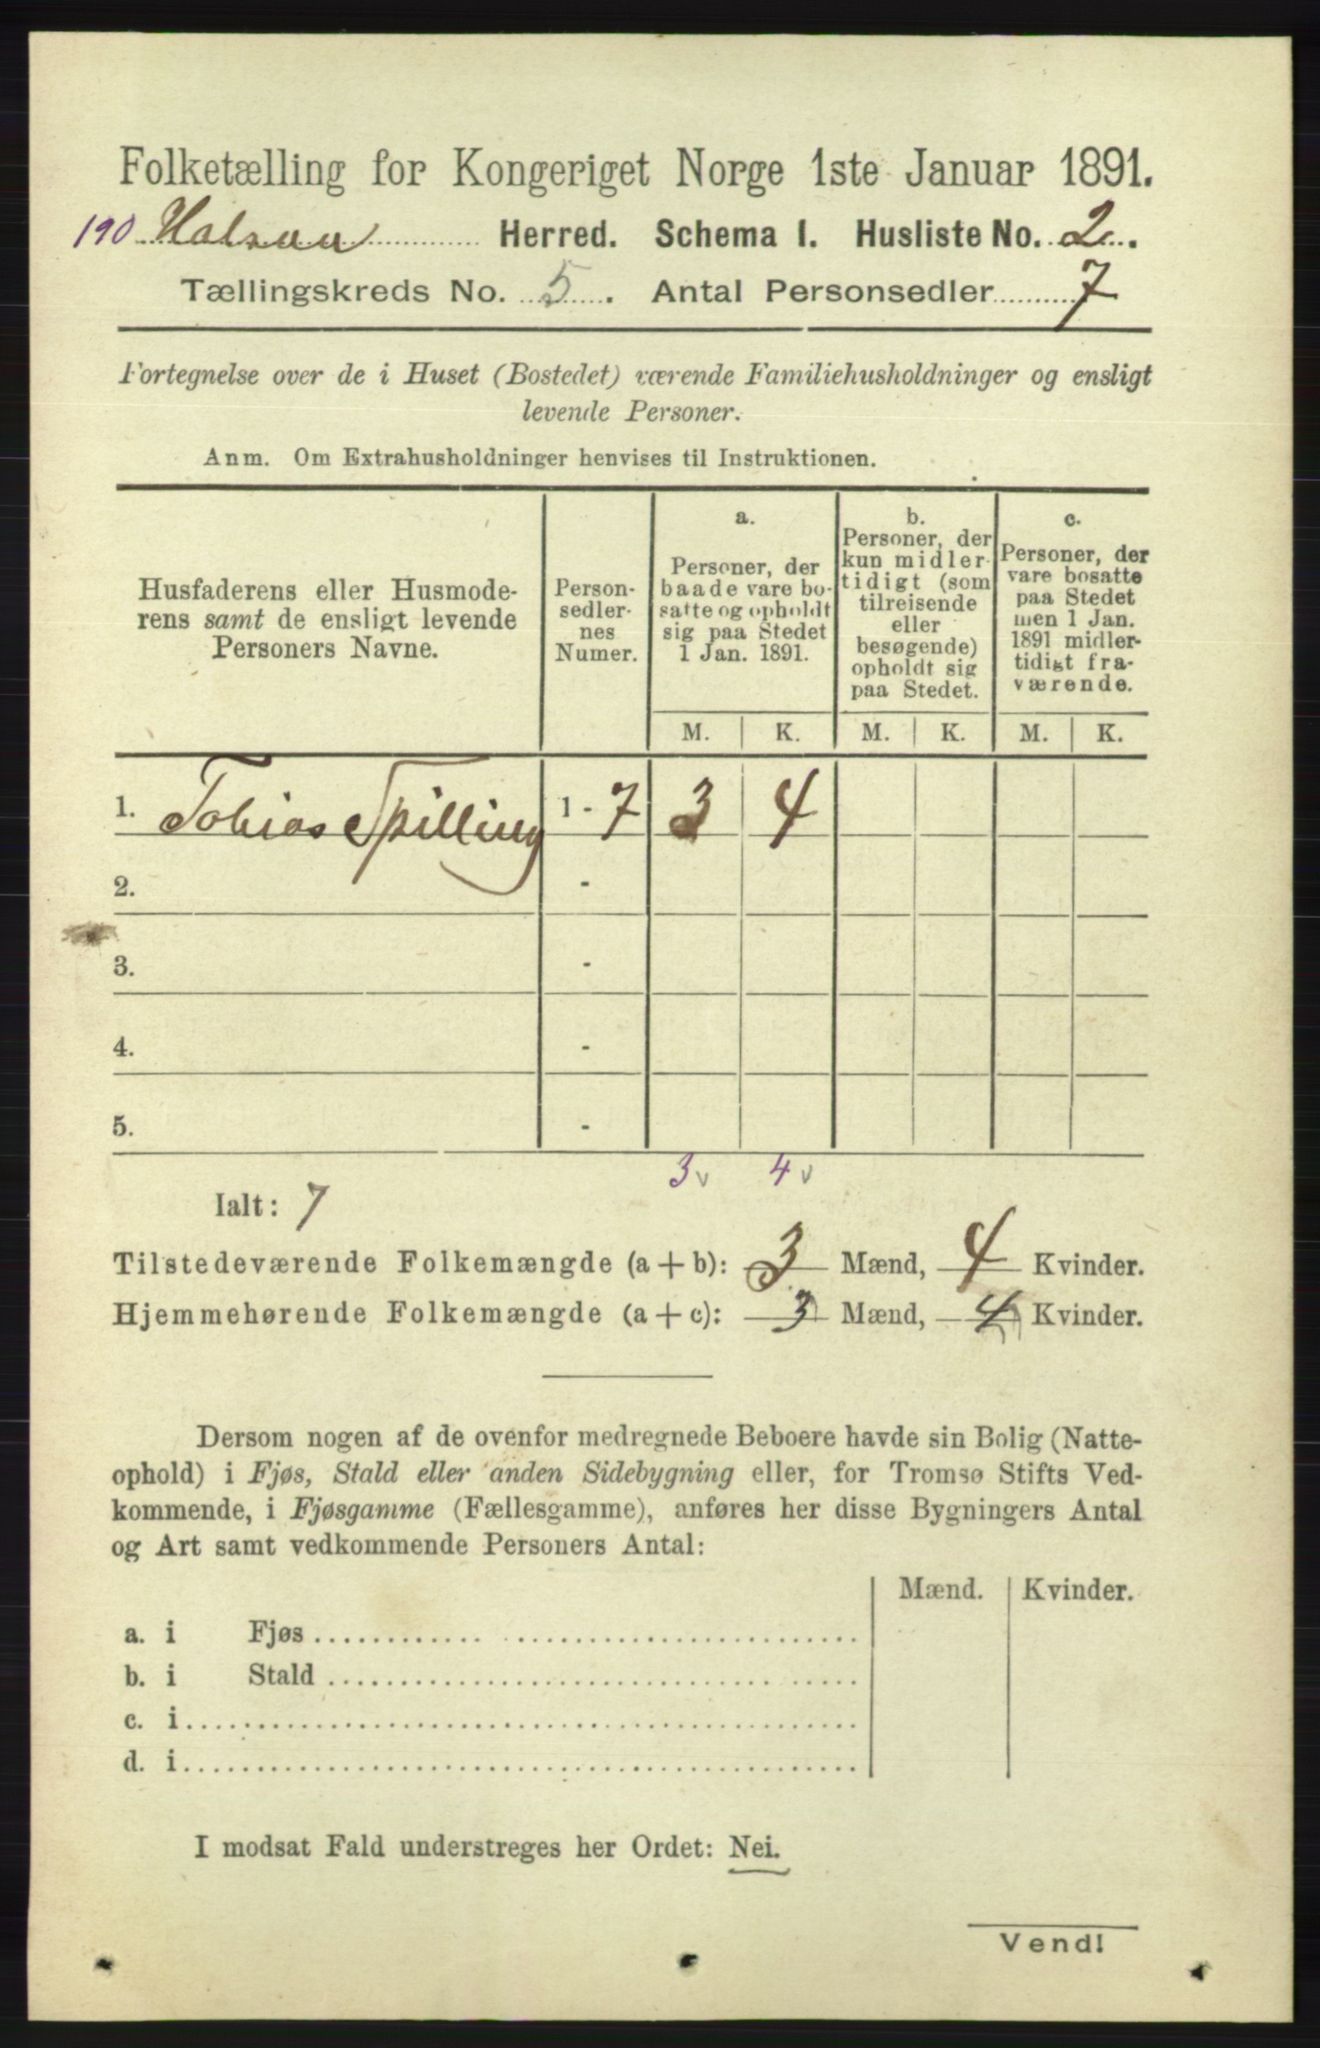 Folketælling for Kongeriget Norge 1ste Januar 1891.
190 Halsaa Herred. Schema I. Husliste No. 2.
Tællingskreds No. 5. Antal Personsedler 7
Fortegnelse over de i Huset (Bostedet) værende Familiehusholdninger og ensligt
levende Personer.
Anm. Om Extrahusholdninger henvises til Instruktionen.
Husfaderens eller Husmode-
rens samt de ensligt levende
Personers Navne.
Person-
sedler-
nes
Numer.
a.
Personer, der
baade vare bo-
satte og opholdt
sig paa Stedet
1 Jan. 1891.
b.
Personer, der
kun midler-
tidigt (som
tilreisende
eller
besøgende)
opholdt sig
paa Stedet.
c.
Personer, der
vare bosatte
paa Stedet
men 1 Jan.
1891 midler-
tidigt fra-
værende.
M. K. M. K. M. K.
1. Tobias Spilling 1 - 7 3 4
2. -
3. -
4. -
5. -
3 v 4 v
Ialt: 7
Tilstedeværende Folkemængde (a + b): 3 Mænd, 4 Kvinder.
Hjemmehørende Folkemængde (a + c): 3 Mænd, 4 Kvinder.
Dersom nogen af de ovenfor medregnede Beboere havde sin Bolig (Natte-
ophold) i Fjøs, Stald eller anden Sidebygning eller, for Tromsø Stifts Ved-
kommende, i Fjøsgamme (Fællesgamme), anføres her disse Bygningers Antal
og Art samt vedkommende Personers Antal:
Mænd. Kvinder.
a. i Fjøs
b. i Stald
c. i
d. i
I modsat Fald understreges her Ordet: Nei.
Vend!